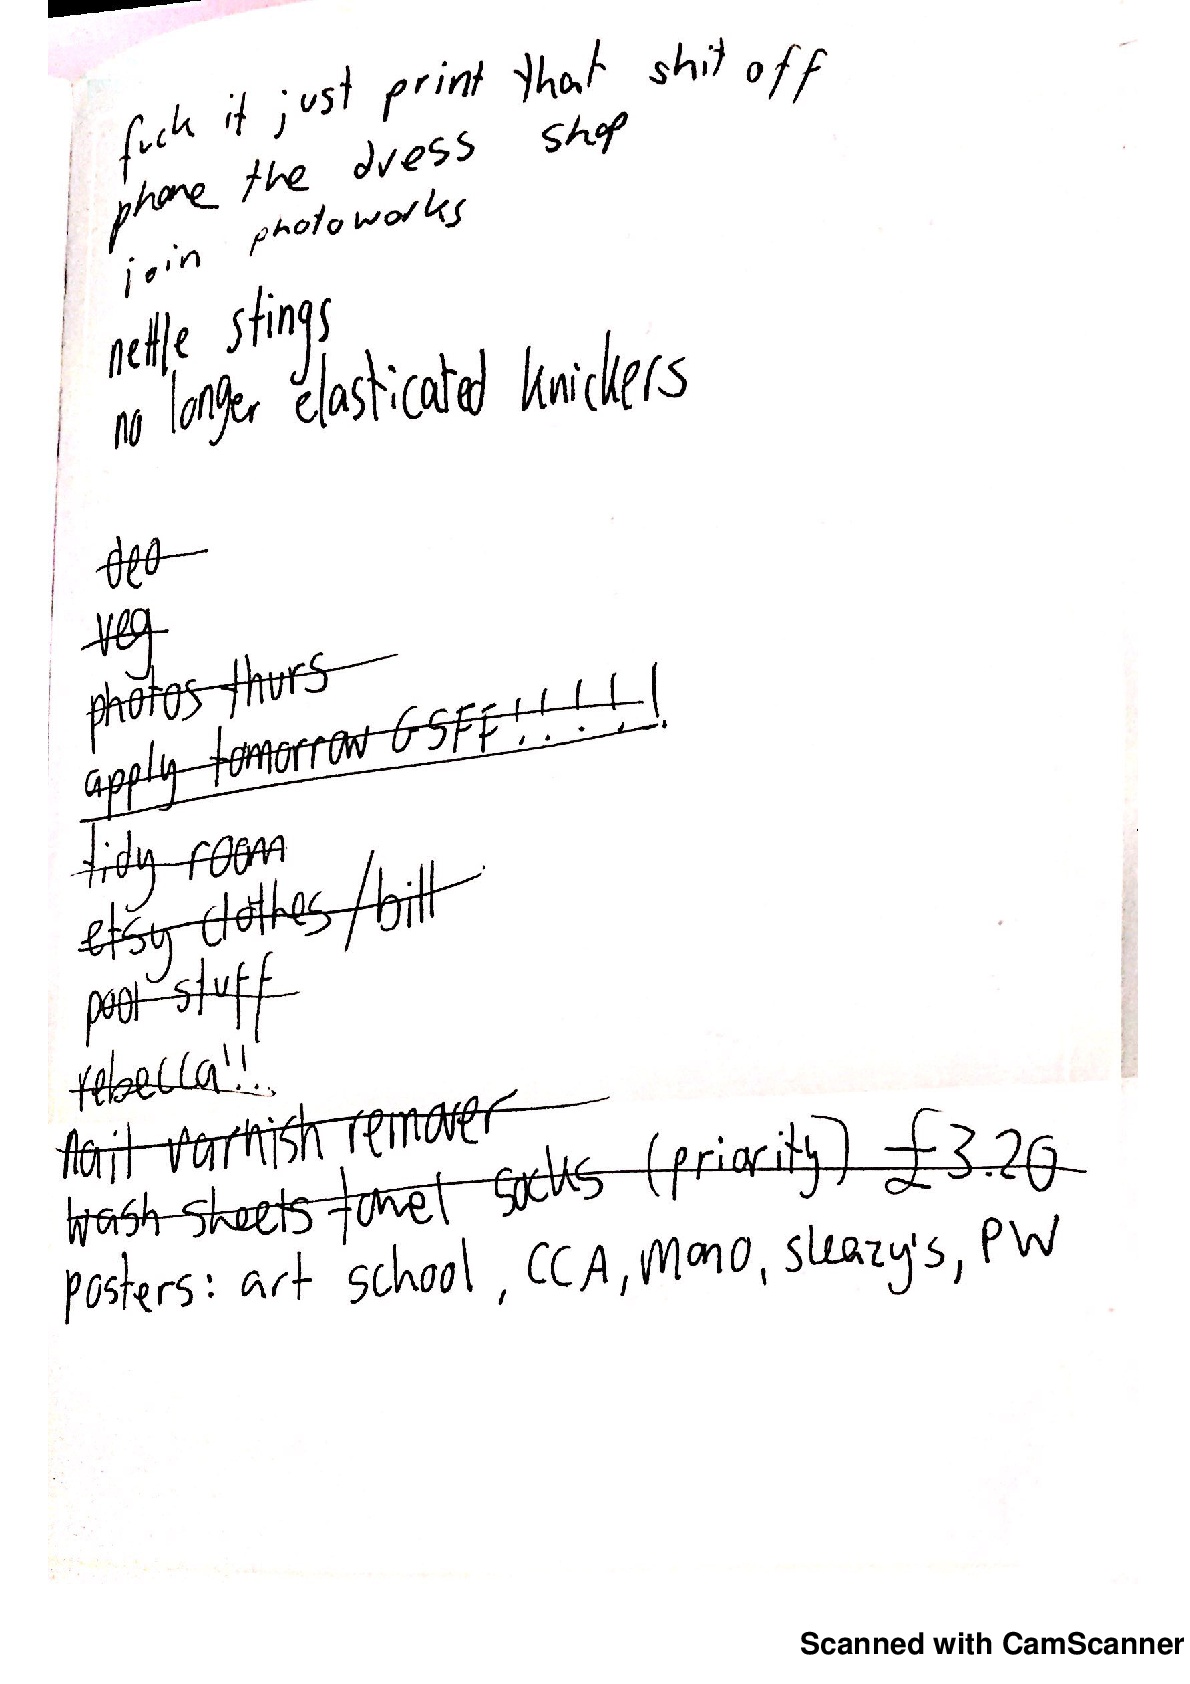 fuck it just print that shit off
phone the dress shop
join photoworks
nettle stings
no longer elasticated knickers
deo
veg
photos thurs
apply tomorrow GSFF!!!!!
tidy room
etsy clothes/bill
pool stuff
rebecca!!
nail varnish remover
wash sheets towel socks (priority) £3.20
posters: art school, CCA, Mono, sleazy's, PW
Scanned with CamScanner